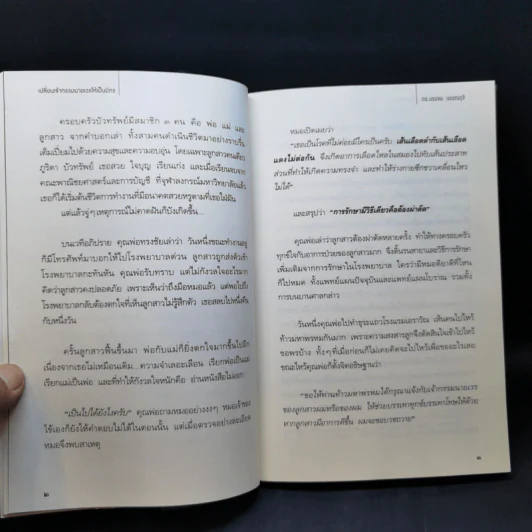 เปลี่ยนเจ้ากรรมนายเวรให้เป็นมิตร
ครอบครัวบัวทรัพย์มีสมาชิก ๓ คน คือ พ่อ แม่ และ
ลูกสาว จากคำบอกเล่า ทั้งสามคนดำเนินชีวิตมาอย่างราบรื่น
เต็มเปี่ยมไปด้วยความสุขและความอบอุ่น โดยเฉพาะลูกสาวคนเดียว
ภูริตา บัวทรัพย์ เธอสวย ใจบุญ เรียนเก่ง และเมื่อเรียนจบจาก
คณะพาณิชยศาสตร์และการบัญชี ที่จุฬาลงกรณ์มหาวิทยาลัยแล้ว
เธอก็ได้เริ่มต้นชีวิตการทำงานที่มีอนาคตสวยหรูตามที่เธอใฝ่ฝัน
แต่แล้วจู่ๆ เหตุการณ์ไม่คาดฝันก็บังเกิดขึ้น...
บนเวทีอภิปราย คุณพ่อทรงชัยเล่าว่า วันหนึ่งขณะทำงานอยู่
ก็มีโทรศัพท์มาบอกให้ไปโรงพยาบาลด่วน ลูกสาวถูกส่งตัวเข้า
โรงพยาบาลกะทันหัน คุณพ่อรับทราบ แต่ไม่กังวลใจอะไรมาก
คิดว่าลูกสาวคงปลอดภัย เพราะเห็นว่าถึงมือหมอแล้ว แต่พอไปถึง
โรงพยาบาลกลับต้องตกใจที่เห็นลูกสาวไม่รู้สึกตัว เธอสลบไปหนึ่งคืน
กับหนึ่งวัน
ครั้นลูกสาวฟื้นขึ้นมา พ่อกับแม่ก็ยิ่งตกใจมากขึ้นไปอีก
เนื่องจากเธอไม่เหมือนเดิม...ความจำเลอะเลือน เรียกพ่อเป็นแม่
เรียกแม่เป็นพ่อ และที่ทำให้กังวลใจหนักคือ อ่านหนังสือไม่ออก
"เป็นไปได้ยังไงครับ" คุณพ่อถามหมออย่างงงๆ หมอเจ้าของ
ไข้เองก็ยังให้คำตอบไม่ได้ในตอนนั้น แต่เมื่อตรวจอย่างละเอียด
หมอจึงพบสาเหตุ
๒
หมอเปิดเผยว่า
"เธอเป็นโรคที่ไม่ค่อยมีใครเป็นครับ เส้นเลือดดำกับเส้นเลือด
แดงไม่ต่อกัน จึงเกิดอาการเลือดไหลในสมองไปทับเส้นประสาท
ส่วนที่ทำให้เกิดความทรงจำ และทำให้ร่างกายซีกขวาเคลื่อนไหว
ไม่ได้"
และสรุปว่า "การรักษามีวิธีเดียวคือต้องผ่าตัด"
คุณพ่อเล่าว่าลูกสาวต้องผ่าตัดหลายครั้ง ทำให้ทางครอบครัว
ทุกข์ใจกับอาการป่วยของลูกสาวมาก จึงดิ้นรนหายาและวิธีการรักษา
เพิ่มเติมจากการรักษาในโรงพยาบาล ใครว่ามีหมอดียาดีที่ไหน
ก็ไปหมด ทั้งแพทย์แผนปัจจุบันและแพทย์แผนโบราณ รวมทั้ง
การบนบานศาลกล่าว
วันหนึ่งคุณพ่อไปทำธุระแถวโรงแรมเอราวัณ เห็นคนไปไหว้
ท้าวมหาพรหมกันมาก เพราะความสงสารลูกจึงตัดสินใจเข้าไปไหว้
ขอพรบ้าง ทั้งๆ ที่เมื่อก่อนก็ไม่เคยคิดจะไปไหว้เพื่อขออะไรเลย
ขณะไหว้คุณพ่อก็ตั้งจิตอธิษฐานว่า
"ขอให้ท่านท้าวมหาพรหมได้กรุณาแจ้งกับเจ้ากรรมนายเวร
ของลูกสาวผมหรือของผม ให้ช่วยบรรเทาทุกข์บรรเทาโทษให้ด้วย
หากลูกสาวมีอาการดีขึ้น ผมจะขอบวชถวาย"
๓